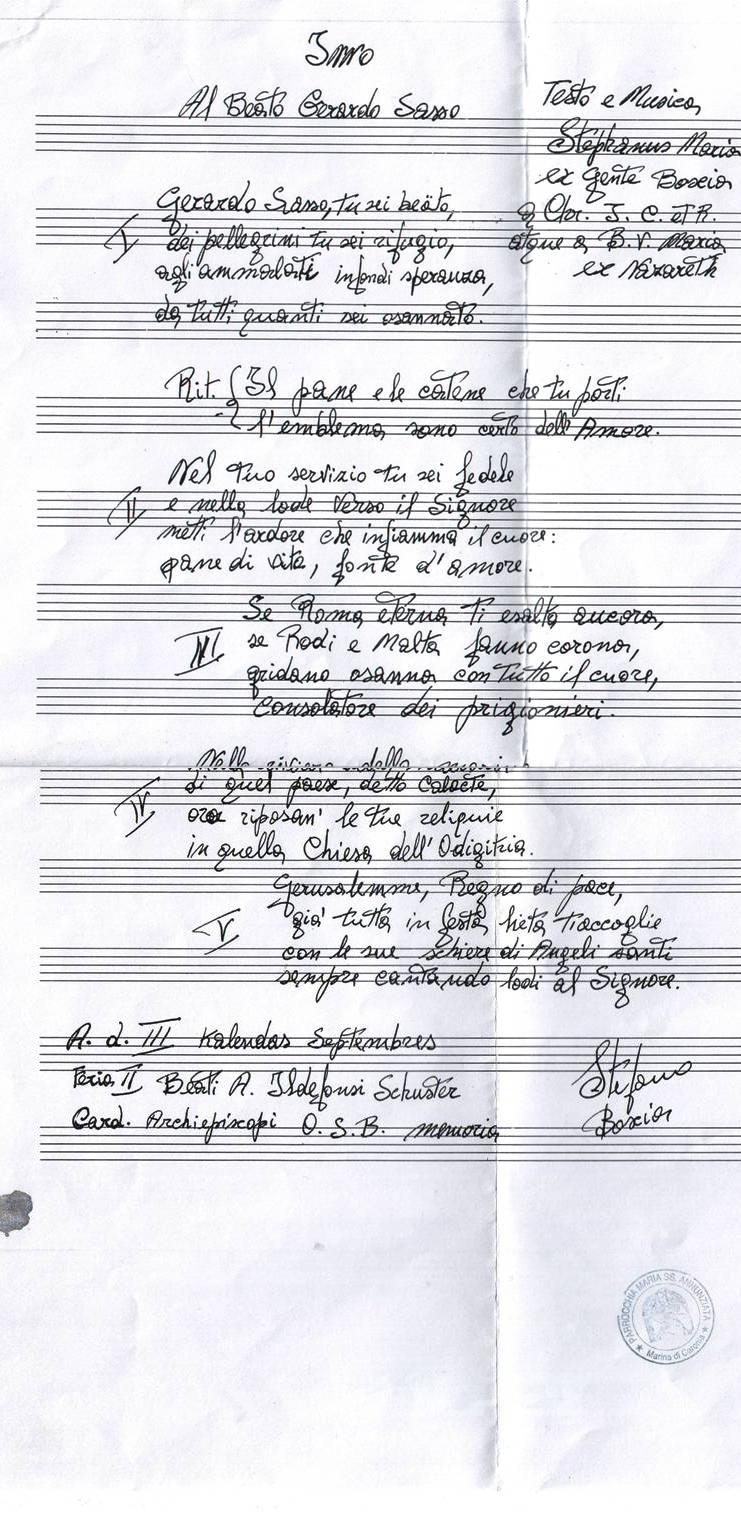 Inno
Al Beato Gerardo Sasso
Testo e Musica
Stephanus Maria
ex gente Boscia
a Chr. J. C. et R.
atque a B. V. Maria
ex Nazareth
I
Gerardo Sasso, tu sei beato,
dei pellegrini tu sei rifugio,
agli ammalati infondi speranza,
da tutti quanti sei osannato.
Rit. { Il pane e le catene che tu porti
l'emblema sono certo dell'Amore.
II
Nel tuo servizio tu sei fedele
e nella lode verso il Signore
metti l'ardore che infiamma il cuore:
pane di vita, fonte d'amore.
III
Se Roma eterna ti esalta ancora,
se Rodi e Malta fanno corona,
gridano osanna con tutto il cuore,
consolatore dei prigionieri.
IV
di quel paese, detto Calacte,
ora riposan' le tue reliquie
in quella Chiesa dell'Odigitria.
V
Gerusalemme, Regno di pace,
gia' tutta in festa, lieta t'accoglie
con le sue schiere di Angeli santi
sempre cantando lodi al Signore.
A. d. III Kalendas Septembres
Feria II Beati A. Ildefonsi Schuster
Card. Archiepiscopi O. S. B. memoria
Stefano
Boscia
PARROCCHIA MARIA SS. ANNUNZIATA
Marina di Caronia